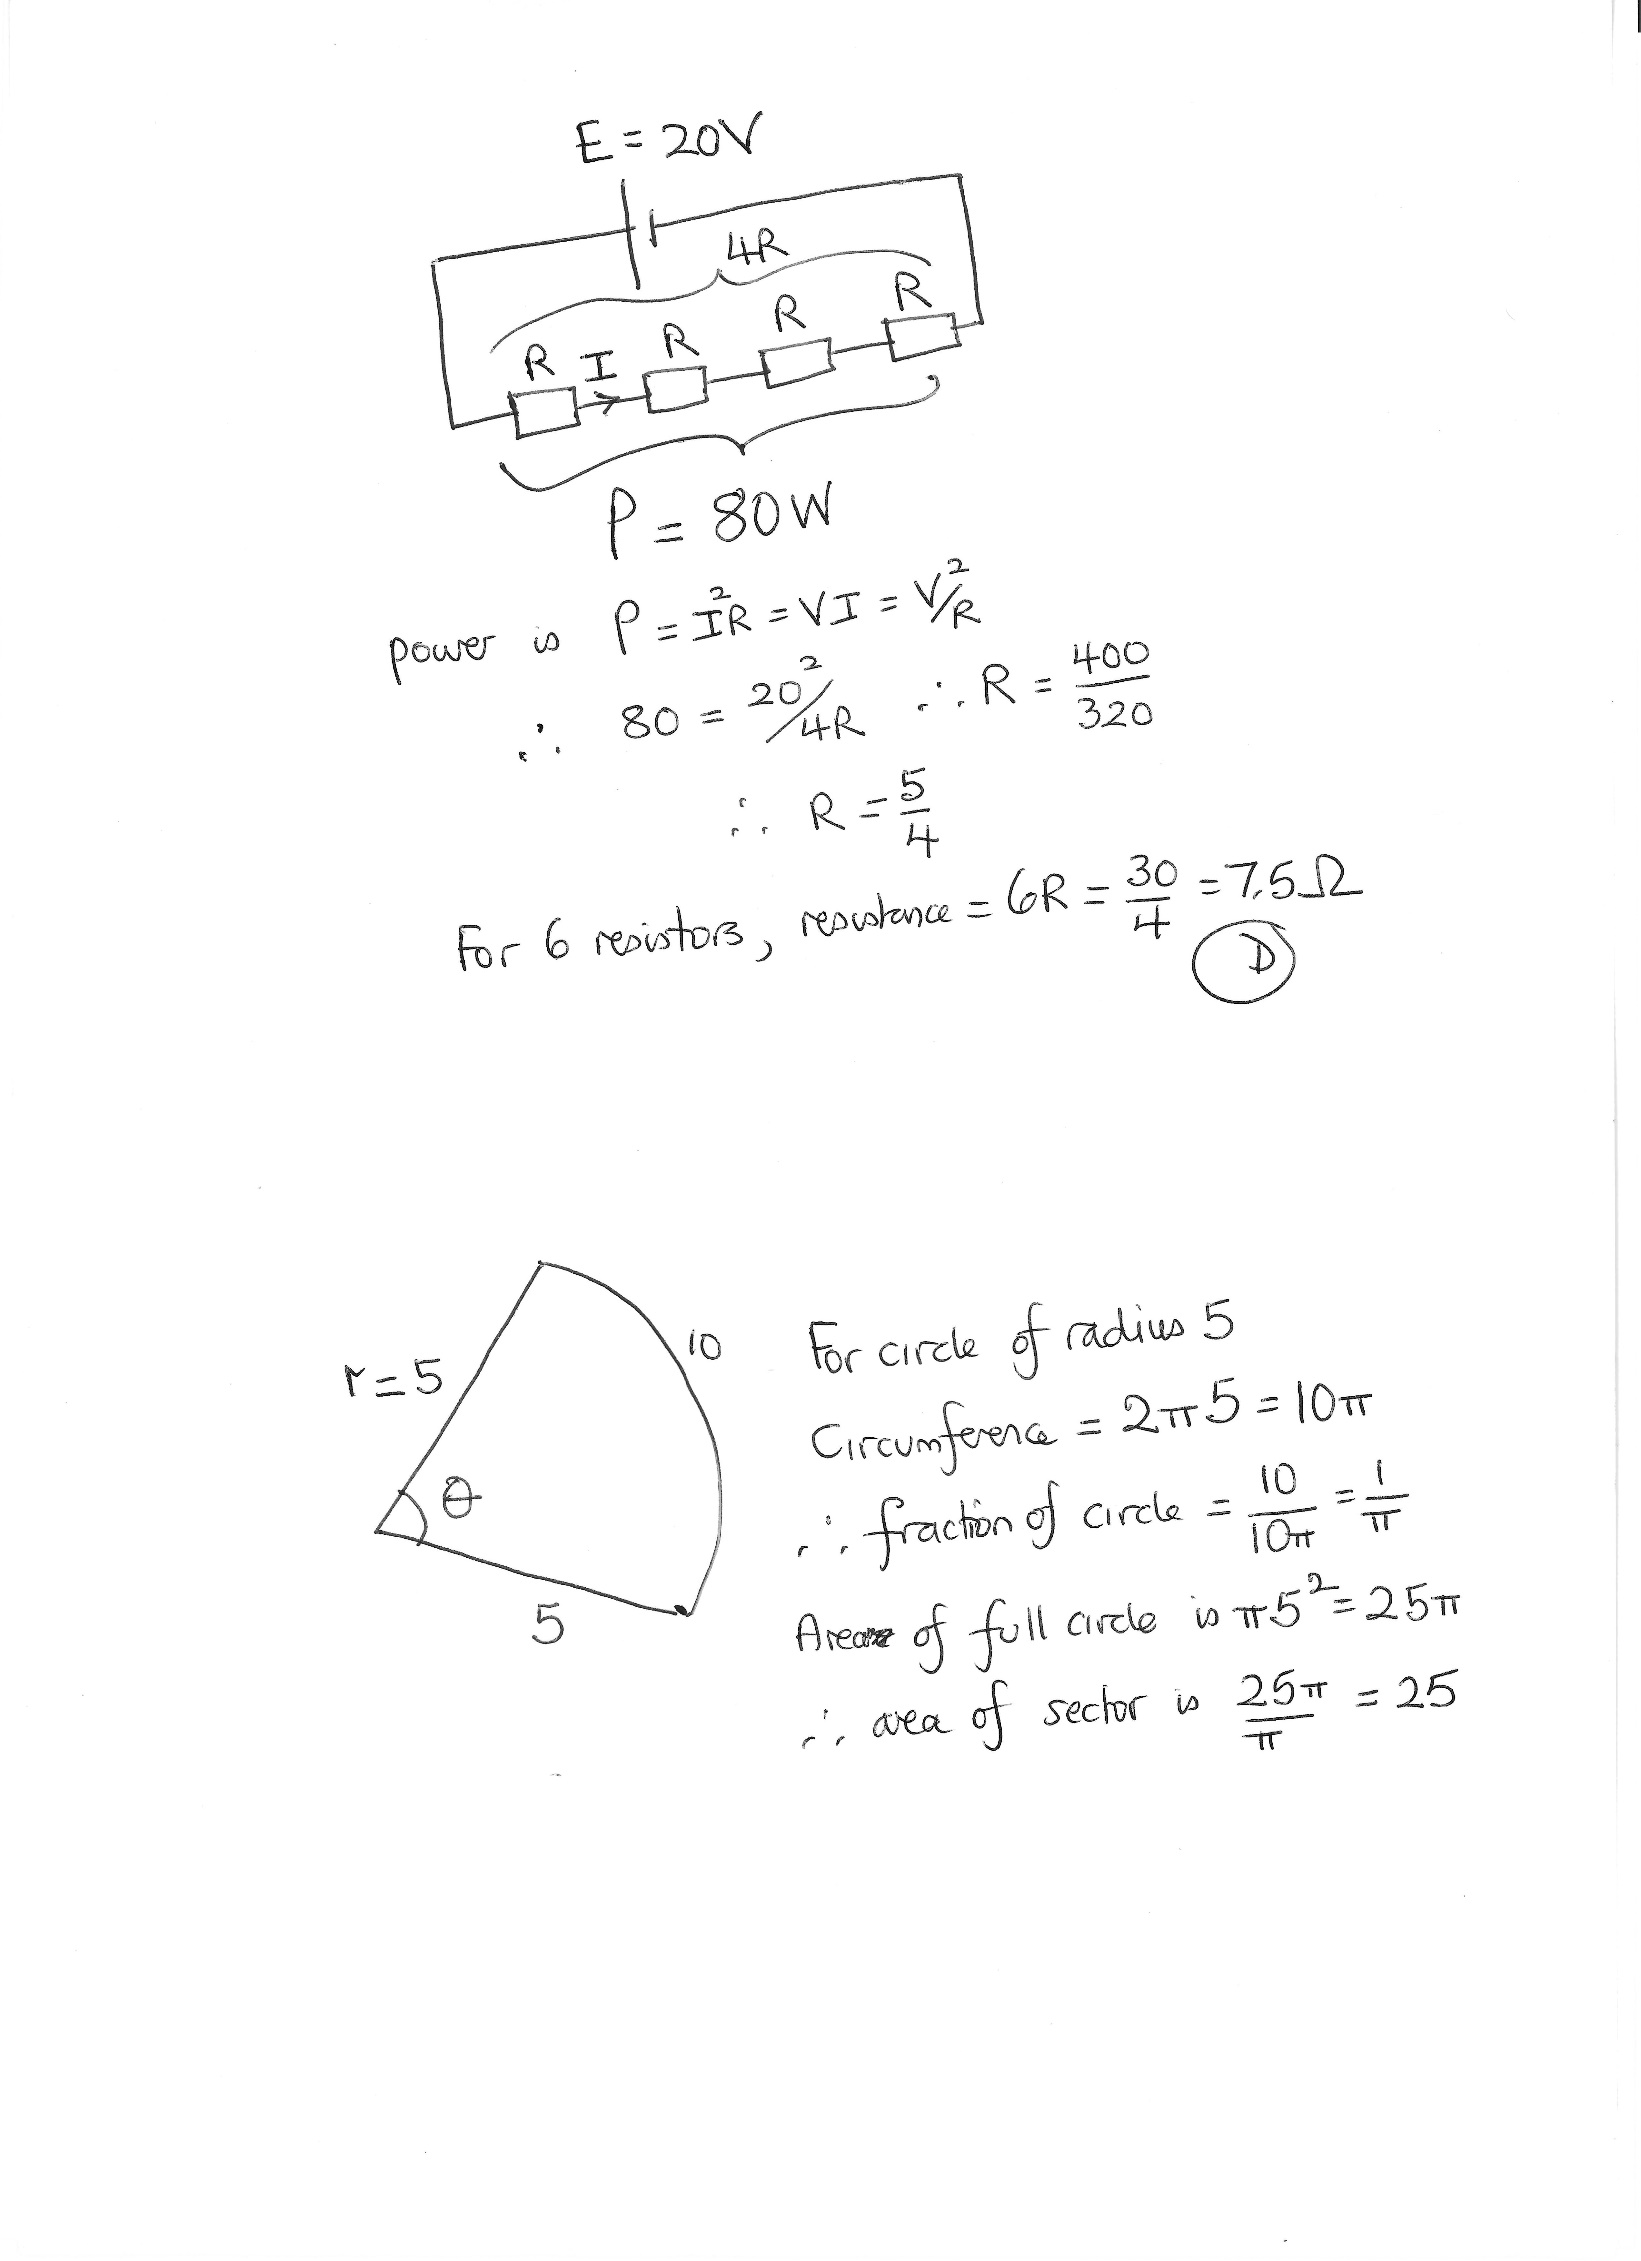 E = 20V
4R
R I R R R
P = 80W
power is P = I²R = VI = V²/R
∴ 80 = 20²/4R ∴ R = 400/320
∴ R = 5/4
For 6 resistors, resistance = 6R = 30/4 = 7.5Ω
D
r = 5
10
θ
5
For circle of radius 5
Circumference = 2π5 = 10π
∴ fraction of circle = 10/10π = 1/π
Area of full circle is π5² = 25π
∴ area of sector is 25π/π = 25